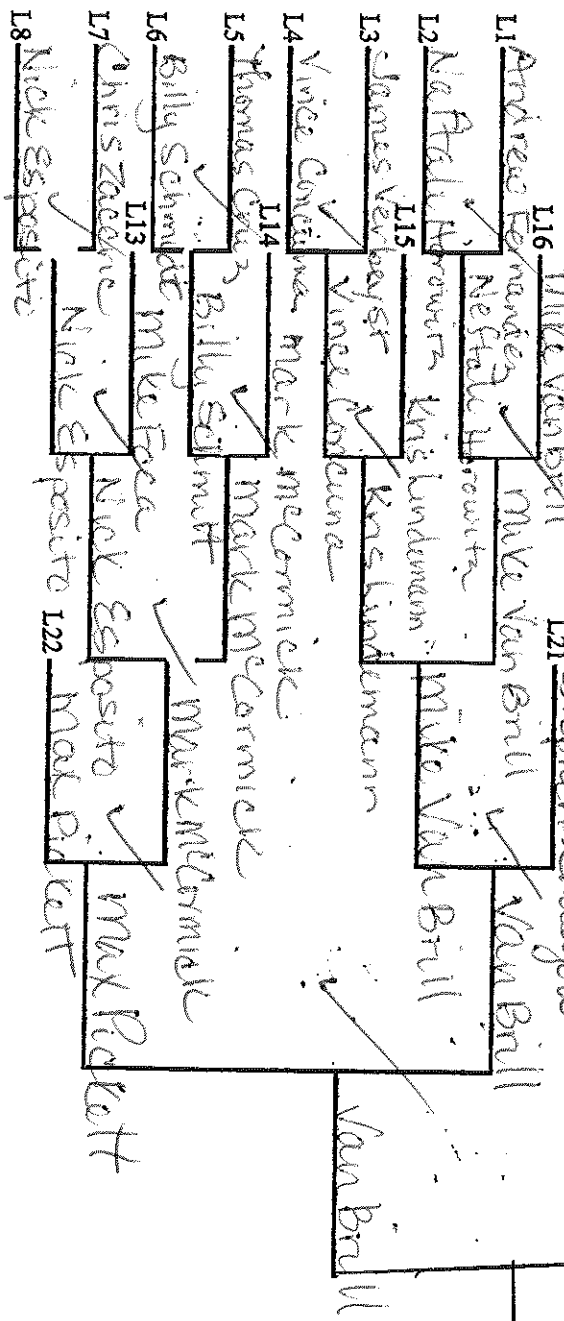 L1 Andrew Fernandez
L2 Naftali Horowitz
L3 James Verbayst
L4 Vince Conciuna
L5 Thomas Cruz
L6 Billy Schmidt
L7 Chris Zaccaric
L8 Nick Esposito
L16 Mike Van Brill
Neftali Horowitz
Kris Lindemann
L15 Vince Concuna
Mark McCormick
L14 Billy Schmitt
Mike Foca
L13 Nick Esposito
Mike Van Brill
Kris Lindemann
Mark McCormick
Nick Esposito
L21
Mike Van Brill
Mark McCormick
L22 Max Pickett
Van Brill
Max Pickett
Van Brill